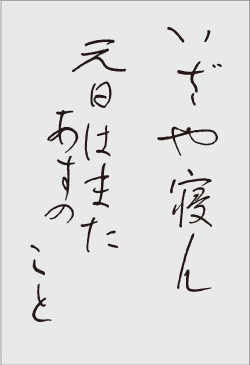 いざや寝ん
元日はまた
あすの
こと